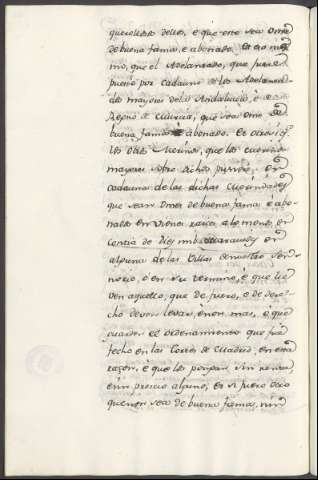 querelloso dellos, e que este sea Ome
de buena fama, e abonado. Et otro mis
mo, que el Adelantado, que fuere
puesto por cada uno de los Adelanta
dos mayores de la Andalucia, e del
Regno de Murcia, que sea Ome de
buena fama e abonado. Et otrosi q
los otros Merinos, que los
mayores sobre dichos pusieren, en
cada una de las dichas Merindades
que sean Omes de buena fama e abo
nados en vienes raices, a lo menos en
contia de diez mil Maravedis en
alguna de las Villas de nuestro Seño
rio, o en su termino, e que lie
ven aquello, que de fuero, e de dere
cho deven levar, e non mas, e que
guarden el ordenamiento que fue
fecho en las Cortes de Madrid, en esta
razon, e que los pongan sin renta
e sin precio alguno, Et si fuere
que non sea de buena fama, nin